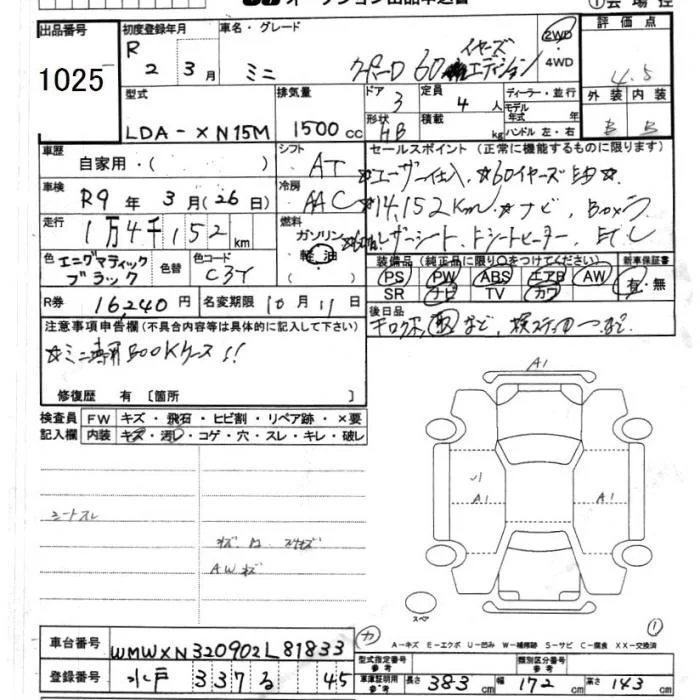 オークション出品申込書
出品番号
1025
初度登録年月
R 2 3月
車名・グレード
ミニ クーパーD 60 イヤーズ エディション
2WD
・4WD
①会場控
評価点
4.5
外装 内装
B B
型式
LDA-XN15M
排気量
1500cc
ドア
3
形状
HB
定員
4人
積載
kg
ディーラー・並行
モデル年式 年
ハンドル 左・右
車歴
自家用・( )
シフト
AT
セールスポイント(正常に機能するものに限ります)
☆ユーザー仕入 ☆60イヤーズED☆
車検
R9年 3月(26日)
冷房
AAC
☆14,152Km ☆ナビ
走行
1万4千152km
燃料
ガソリン
軽油
レザーシート シートヒーター ETC
色
エニグマティックブラック
色替
色コード
C3Y
装備品(純正品に限り○をつけてください)
PS PW ABS エアB AW
SR ナビ TV カワ
新車保証書
有・無
R券
16,240円
名変期限
10月11日
後日品
注意事項申告欄(不具合内容等は具体的に記入して下さい)
☆ミニ専用BOOKケース!!
修復歴 有〔箇所 〕
検査員記入欄
FW キズ・飛石・ヒビ割・リペア跡・×要
内装 キズ・汚レ・コゲ・穴・スレ・キレ・破レ
A1
A1
A1
シートスレ
AWキズ
スペア
A-キズ E-エクボ U-凹み W-補修跡 S-サビ C-腐食 XX-交換済
①
車台番号
WMWXN320902L81833
カ
登録番号
水戸 337 る 45
型式指定番号
参考
類別区分番号
参考
車庫証明用
参考
長さ 383cm 幅 172cm 高さ 143cm